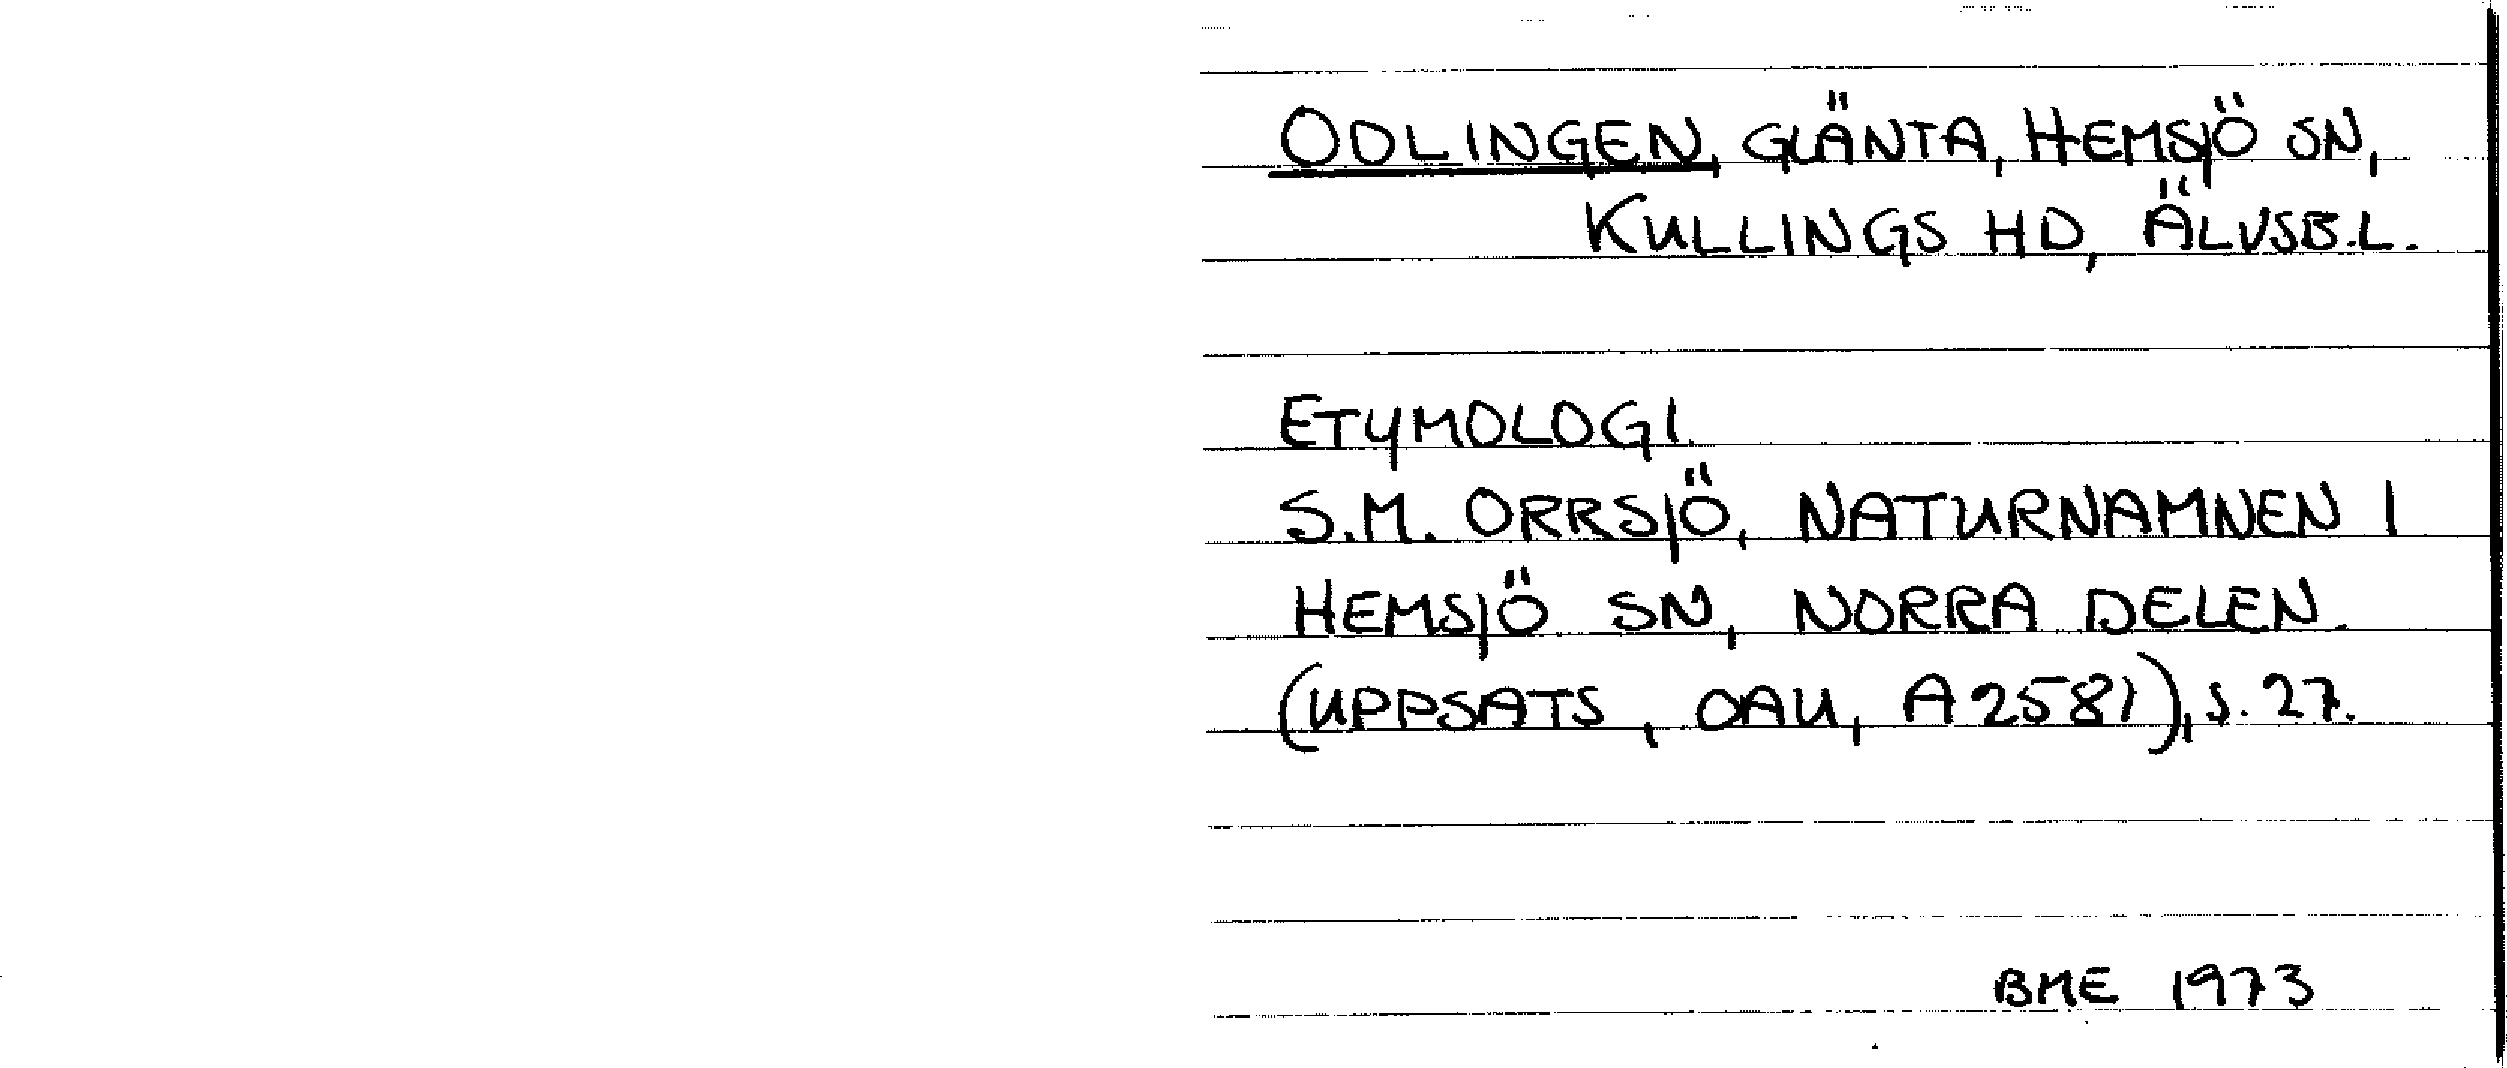 ODLINGEN, GLÄNTA, HEMSJÖ SN,
KULLINGS HD, ÄLVSB.L.
ETYMOLOGI.
S.M. ORRSJÖ, NATURNAMNEN I
HEMSJÖ SN, NORRA DELEN.
(UPPSATS, OAU, A2581), S. 27.
BME 1973